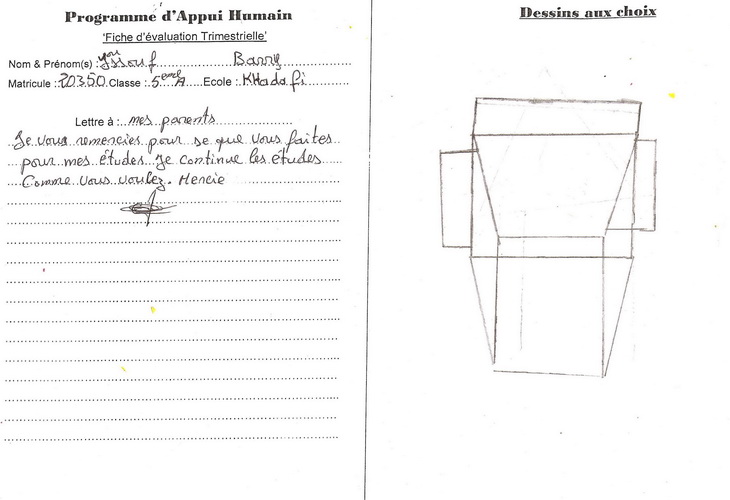 Programme d'Appui Humain
'Fiche d'évaluation Trimestrielle'
Nom & Prénom(s) : Yssouf Barry
you
Matricule : 20350 Classe : 5eme A Ecole : KHadafi
Lettre à : mes parents
Je vous remencies pour se que vous faites
pour mes études. Je continue les études
Comme vous voulez. Mercie
Dessins aux choix